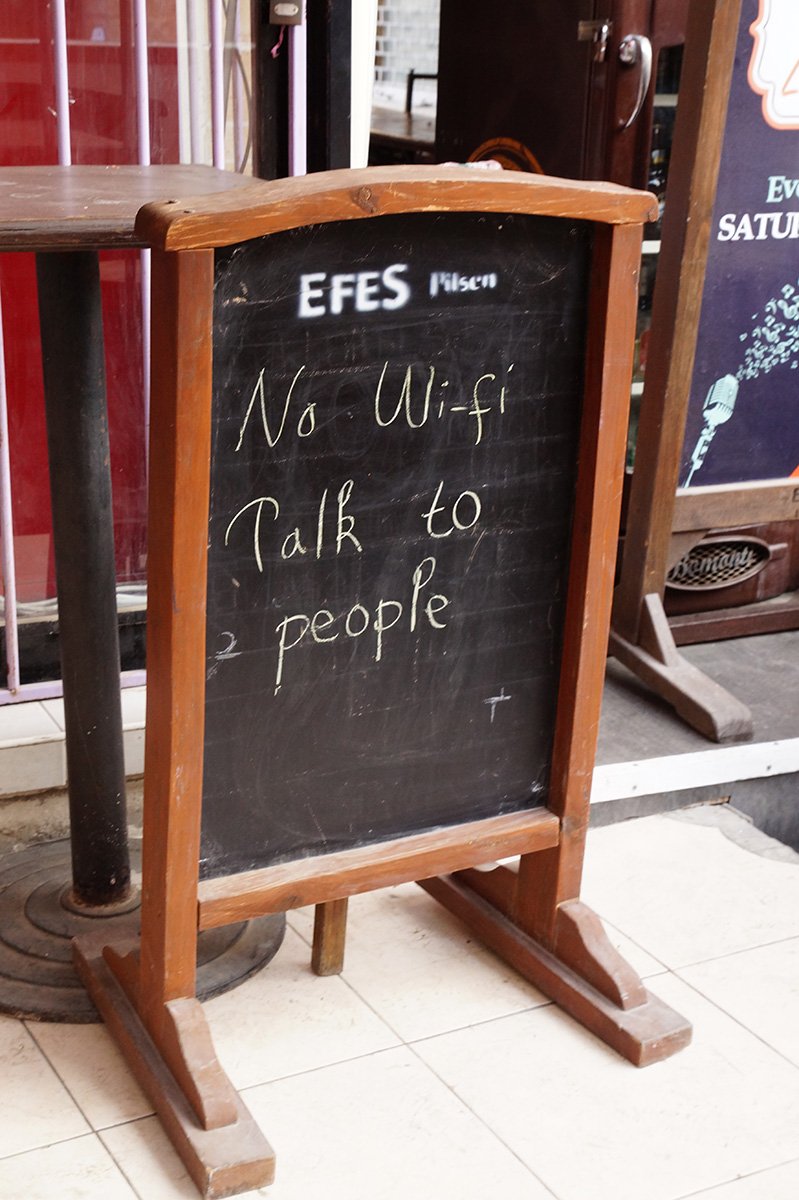 EFES Pilsen
No Wi-fi
Talk to
people
SATU
Bomonti